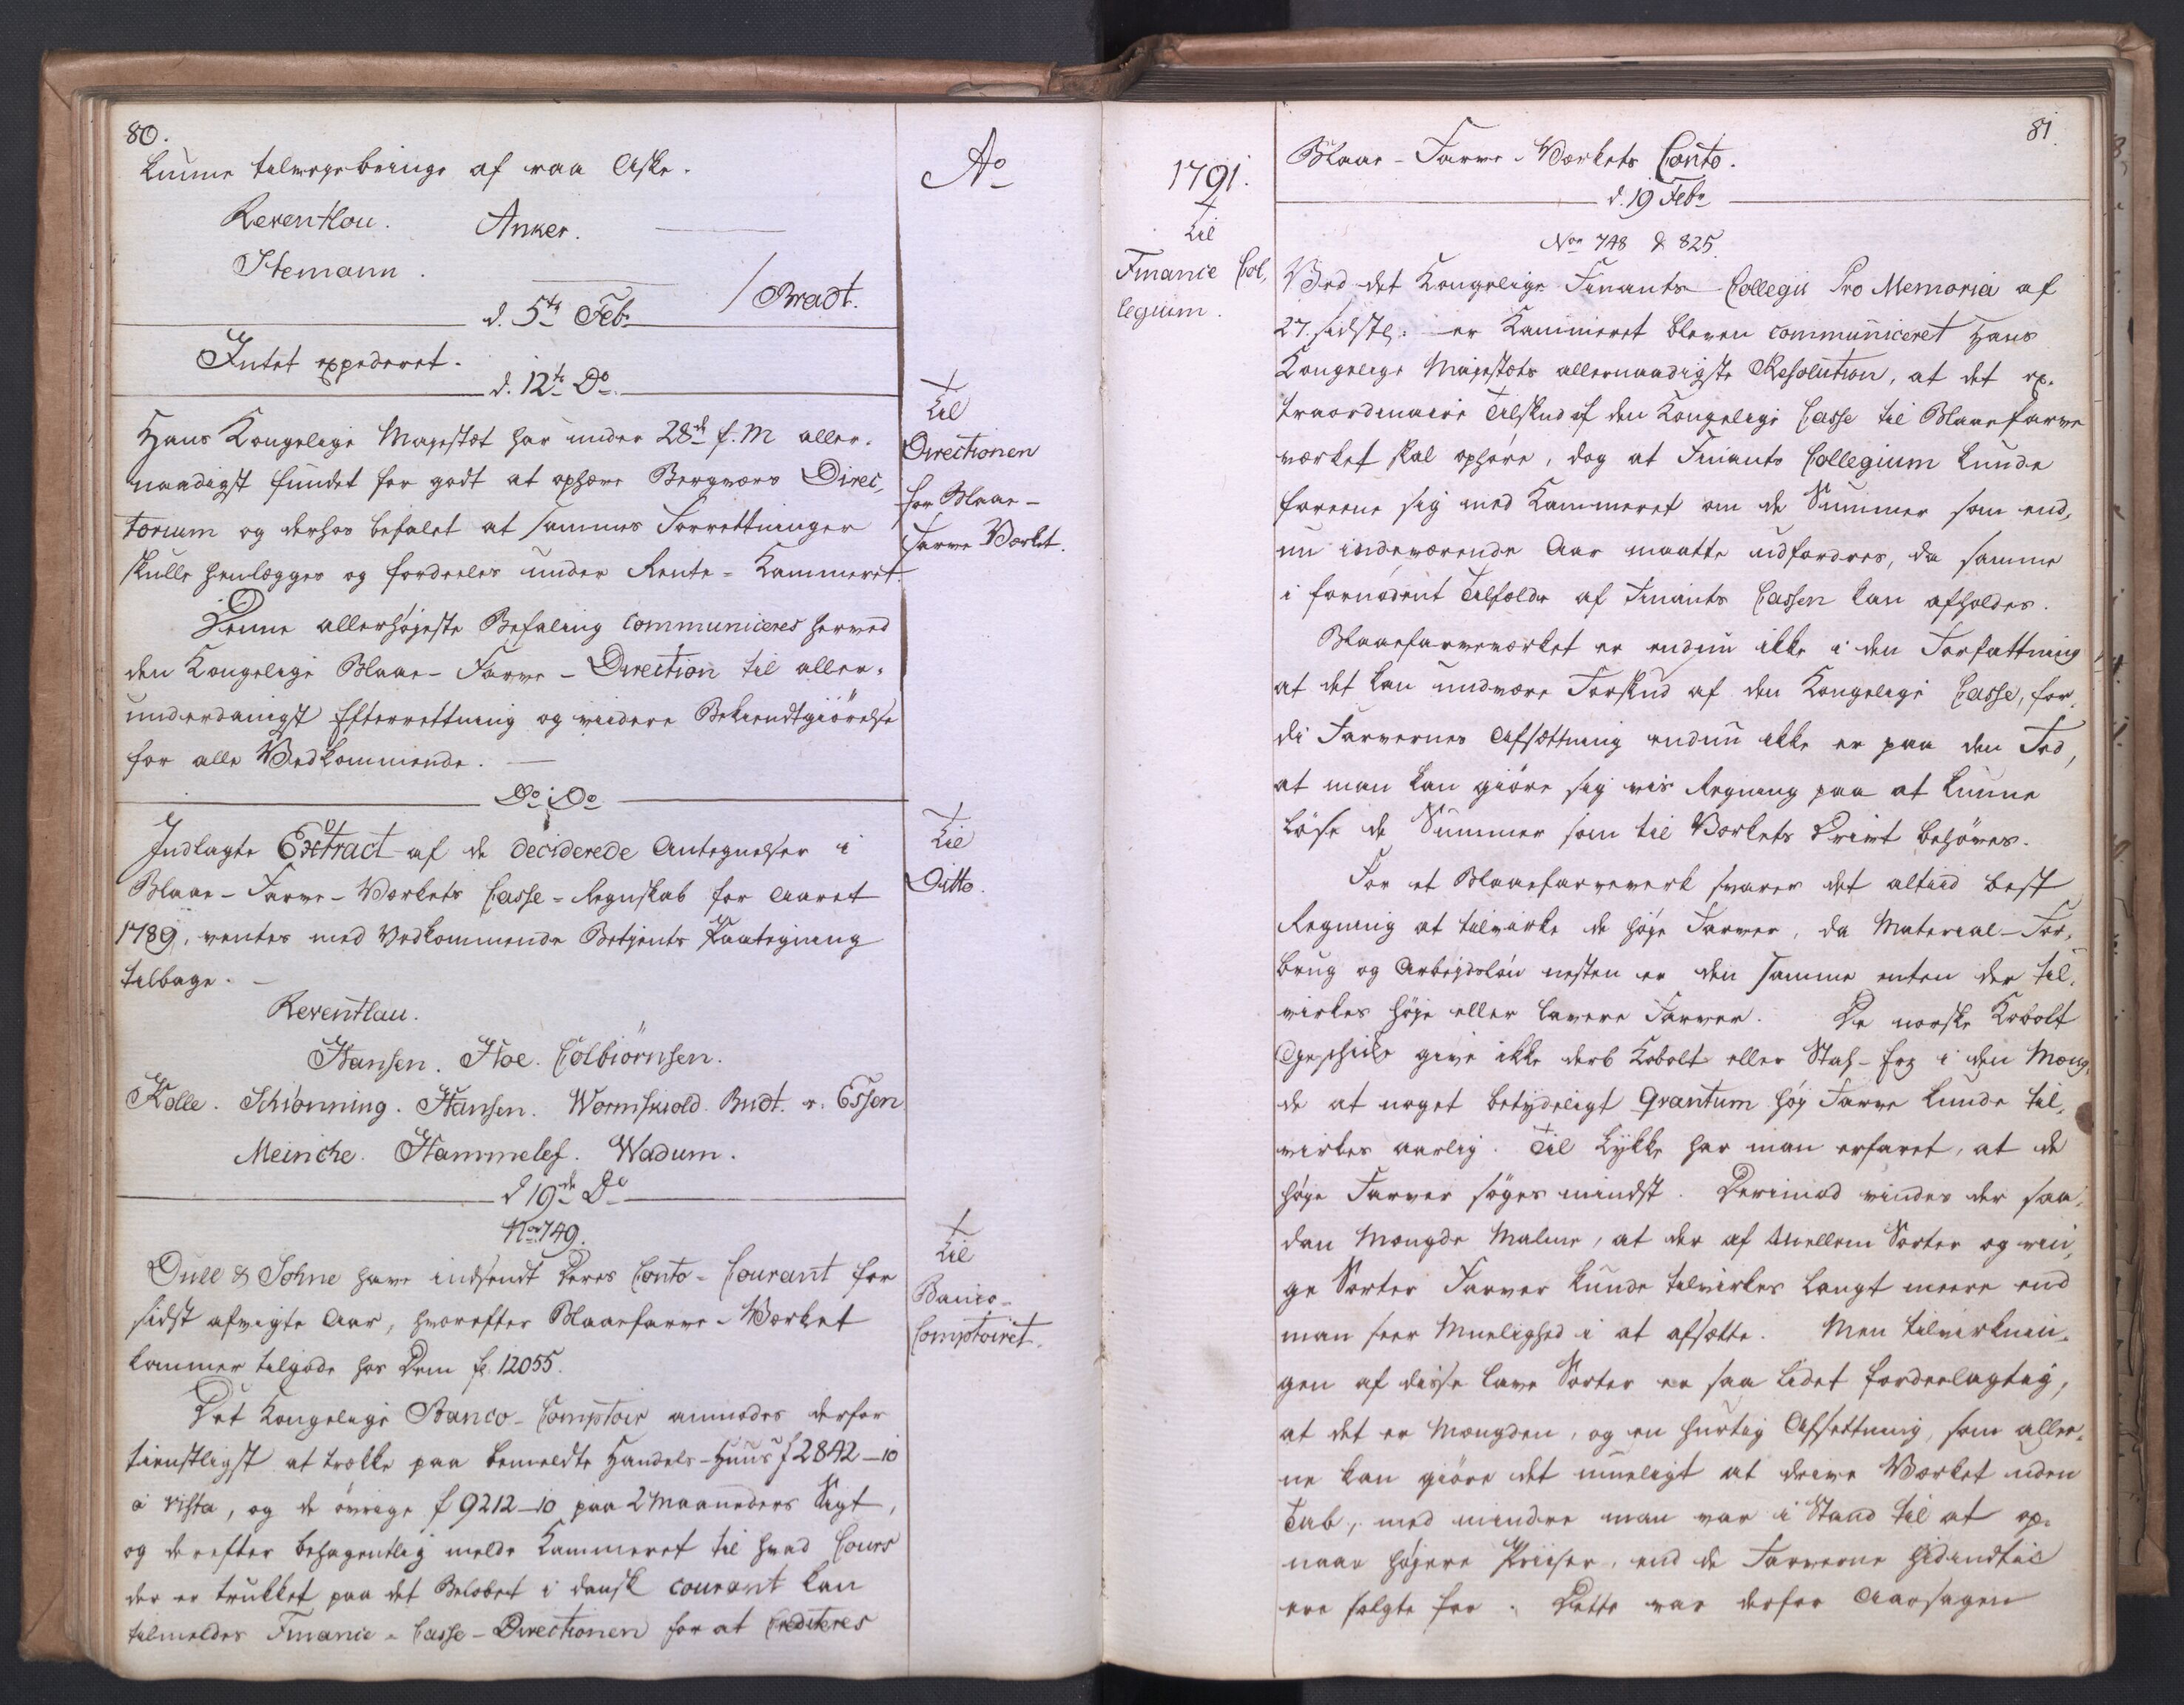 80.
kunne tilvejebringe af raa Aske.
Reventlou. Anker.
Stemann.
/ Bradt.
d. 5te Feb:
Intet expederet.
d. 12te Do
Hans Kongelige Majestæt har under 28de f. M aller-
naadigst fundet for godt at ophæve Bergværs Direc,
torium og derhos befalet at sammes Forrettninger
skulle henlægges og fordeeles under Rente-Kammeret.
Denne allerhøjeste Befaling communiceres herved
den Kongelige Blaae-Farve-Direction til aller-
underdanigst Efterrettning og viidere Bekiendtgiörelse
for alle Vedkommende.
Do Do
Indlagte Extract af de deciderede Antegnelser i
Blaae-Farve-Værkets Casse-Regnskab for Aaret
1789, ventes med Vedkommende Betjents Paategning
tilbage.
Reventlau.
Hansen. Hoe. Colbiörnsen.
Kölle. Schiönning. Hansen. Wormskiold. Budt. v. Essen
Meinche. Hammelef. Wadum.
d 19de Do
No 749.
Dull & Sohne have indsendt Deres Conto-Courant for
sidst afvigte Aar, hvorefter Blaaefarve-Værket
kommer tilgode hos Dem f. 12055.
Det Kongelige Banco-Comptoir anmodes derfor
tienstligst at trække paa bemeldte Handels-Huus f 2842-10
a vista, og de övrige f 9212-10 paa 2 Maaneders Sigt,
og derefter behagentlig melde Kammeret til hvad Cours
der er trukket paa det Belöbet i dansk courant kan
tilmeldes Finance-Casse-Directionen for at crediteres
Ao
Til
Directionen
for Blaae-
Farve Værket.
Til
Ditto.
Til
Banco-
Comptoiret.
1791.
Til
Finance Col,
legium.
81.
Blaae-Farve-Værkets Conto.
d. 19 Feb:
Nos 748 & 825.
Ved det Kongelige Finants Collegii Pro Memoria af
27. sidstl: er Kammeret bleven communiceret Hans
Kongelige Majestæts allernaadigste Resolution, at det ex-
traordinaire Tilskud af den Kongelige Casse til Blaaefarve
værket skal ophøre, dog at Finants Collegium kunde
foreene sig med Kammeret om de Summer som end,
nu indeværende Aar maatte udfordres, da samme
i fornødent Tilfælde af Finants Cassen kan afholdes.
Blaaefarveværket er endnu ikke i den Forfattning
at det kan undvære Forskud af den Kongelige Casse, for,
di Farvernes Afsættning endnu ikke er paa den Fod,
at man kan giöre sig vis Regning paa at kunne
löse de Summer som til Værkets Drivt behöves.
For et Blaaefarveværk svarer det altiid best
Regning at tilvirke de höje Farver, da Material-For,
brug og Arbejdslön nesten er den samme enten der til,
virkes höje eller lavere Farver. De norske Kobolt
geschicke give ikke derb Kobolt eller Stuf-Erz i den Mæng,
de at noget betydeligt Qvantum höj Farve kunde til,
virkes aarlig. Til Lykke har man erfaret, at de
höje Farver söges mindst. Derimod vindes der saa,
dan Mængde Malme, at der af Mellem Sorter og rin,
ge Sorter Farver kunde tilvirkes langt meere end
man seer Muelighed i at afsætte. Men tilvirknin,
gen af disse lave Sorter er saa lidet fordeelagtig,
at det er Mængden, og en hurtig Afsettning, som allee,
ne kan giöre det mueligt at drive Værket uden
Tab, med mindre man var i Stand til at op-
naae höjere Priiser, end de Farverne hidindtil
ere solgte for. Dette var derfor Aarsagen